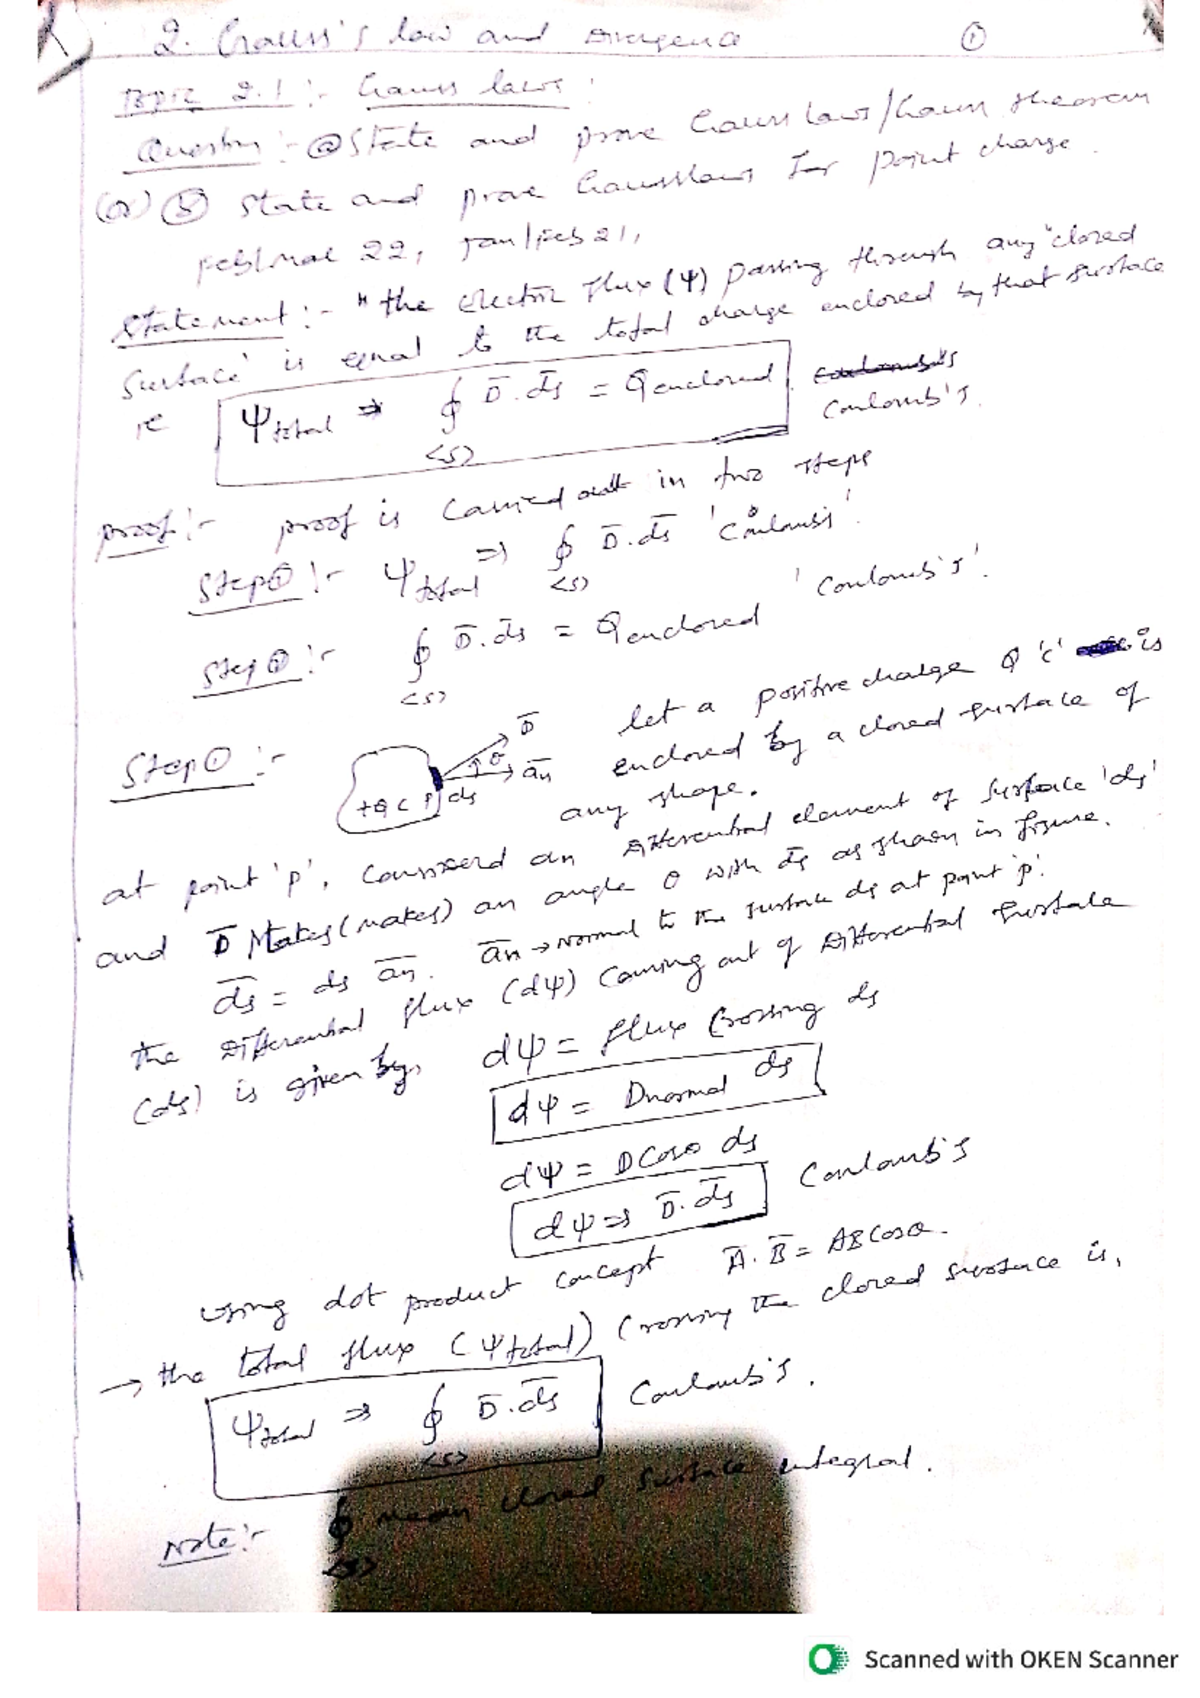 2. Gauss's law and Divergence ①
Topic 2.1 :- Gauss laws :
Question :- ⓐ State and prove Gauss law / Gauss theorem
(or) ⓑ State and prove Gausslaws for point charge.
Feb/Mar 22, Jan/Feb 21,
Statement :- "the electric flux (ψ) passing through any "closed
surface' is equal to the total charge enclosed by that surface
ie ψtotal ⇒ ∮<s> D̄.d̄s = Qenclosed Coulomb's
Coulomb's.
proof :- proof is carried out in two steps
Step① :- ψtotal ⇒ ∮<s> D̄.d̄s 'Coulomb's'.
Step② :- ∮<s> D̄.d̄s = Qenclosed 'Coulomb's'.
Step① :- let a positive charge Q 'c' is
enclosed by a closed surface of
any shape.
D̄ θ ān +Q C P ds
at point 'p', considerd an differential element of surface 'ds'
and D̄ Makes (makes) an angle θ with d̄s as shown in figure.
d̄s = ds ān. ān → normal to the surface ds at point 'p'.
the differential flux (dψ) coming out of differential surface
(ds) is given by, dψ = flux crossing ds
dψ = Dnormal ds
dψ = D Cosθ ds
dψ ⇒ D̄.d̄s Coulomb's
using dot product concept Ā.B̄ = ABCosθ.
→ the total flux (ψtotal) crossing the closed surface is,
ψtotal ⇒ ∮<s> D̄.d̄s Coulomb's.
Note :- ∮<s> mean closed surface integral.
Scanned with OKEN Scanner